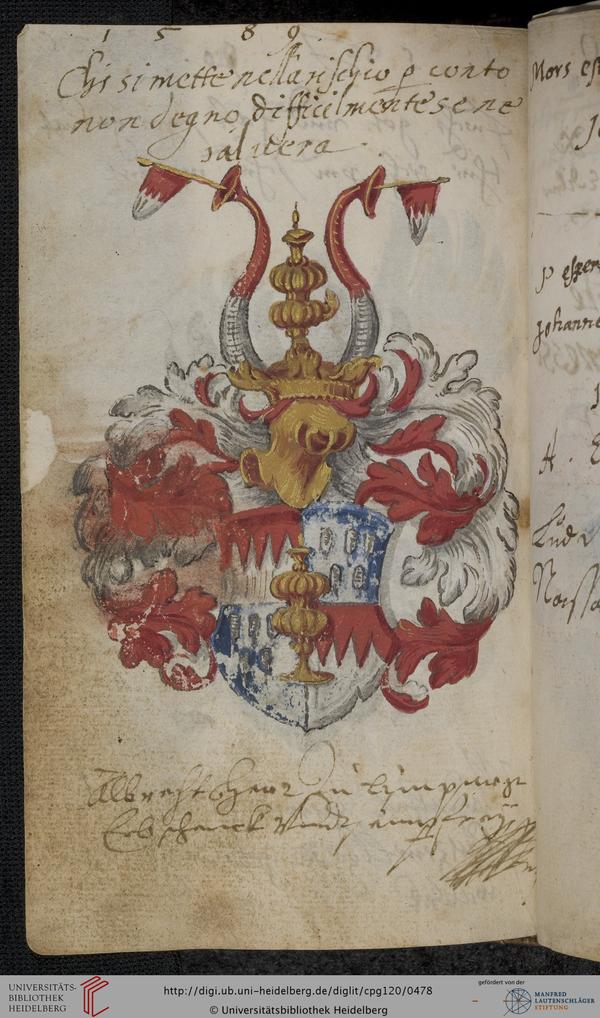 1 5 8 9.
Chi si mette nella rischio p conto
non degno, difficilmente se ne
salvera.
Albrecht Herr zu Limpurg
Erbschenck
Mors est
Jo
P esper
Johanne
A. E
Ludv
Nassa
UNIVERSITÄTS-
BIBLIOTHEK
HEIDELBERG
http://digi.ub.uni-heidelberg.de/diglit/cpg120/0478
© Universitätsbibliothek Heidelberg
gefördert von der
MANFRED
LAUTENSCHLÄGER
STIFTUNG